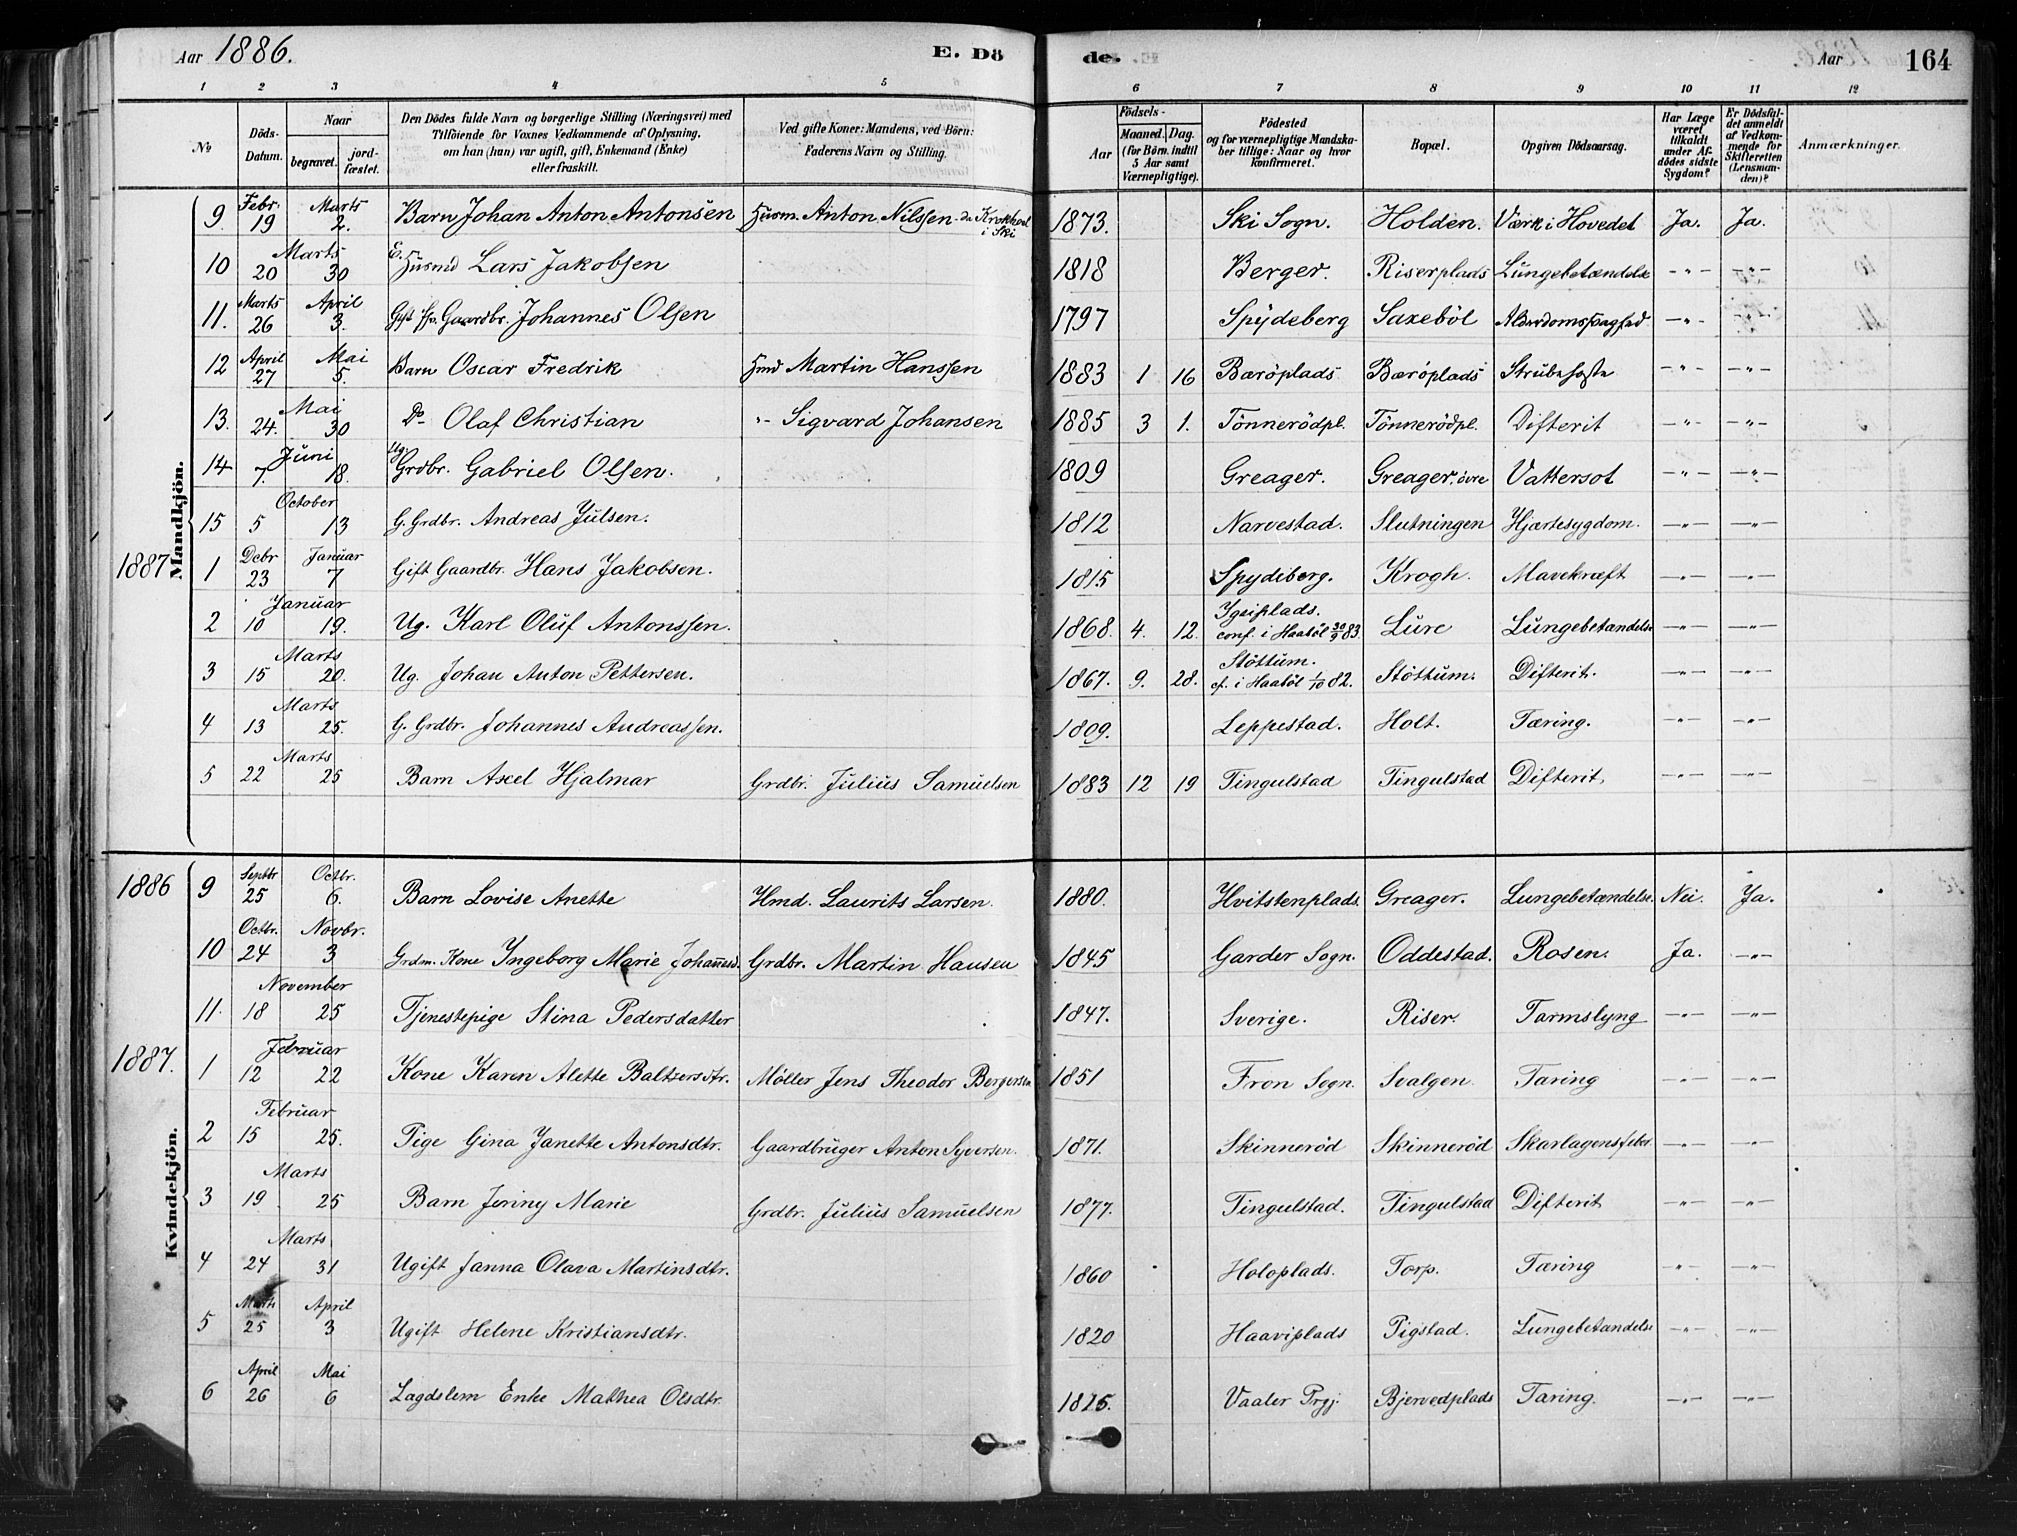 Aar 1886. E. Dö de. Aar 164
1 2 3 4 5 6 7 8 9 10 11 12
No
Döds-Datum.
Naar
begravet.
jord-fæstet.
Den Dödes fulde Navn og borgerlige Stilling (Næringsvei) med
Tilföiende for Voxnes Vedkommende af Oplysning,
om han (hun) var ugift, gift, Enkemand (Enke)
eller fraskilt.
Ved gifte Koner: Mandens, ved Börn:
Faderens Navn og Stilling.
Födsels-
Aar
Maaned. Dag.
(for Börn indtil
5 Aar samt
Værnepligtige).
Födested
og for værnepligtige Mandska-
ber tillige: Naar og hvor
konfirmeret.
Bopæl.
Opgiven Dödsaarsag.
Har Læge
været
tilkaldt
under Af-
dödes sidste
Sygdom?
Er Dödsfal-
det anmeldt
af Vedkom-
mende for
Skifteretten
(Lensman-
den)?
Anmærkninger.
Mandkjön.
9. Febr. 19 Marts 2. Barn Johan Anton Antonsen Husm. Anton Nilssen i Ski 1873. Ski Sogn. Holden. Værk i Hovedet Ja. Ja.
10 Marts 20 30 E. Husmd Lars Jakobsen 1818 Berger. Riserplads Lungebetændelse -"- -"-
11. Marts 26 April 3. Gaardbr. Johannes Olsen 1797 Spydeberg Saxeböl -"- -"-
12 April 27 Mai 5. Barn Oscar Fredrik Hmd Martin Hanssen 1883 1 16 Baröplads Bæröplads Strubehoste -"- -"-
13. Mai 24. 30 Do Olaf Christian "- Sigvard Johansen 1885 3 1. Tönnerödpl. Tönnerödpl. Difterit -"- -"-
14 Juni 7. 18. Ug. Grdbr. Gabriel Olsen. 1809 Greager. Greager, övre Vattersot -"- -"-
15 October 5 13 G. Grdbr. Andreas Julsen. 1812 Narvestad. Slutningen Hjærtesygdom. -"- -"-
1887 1 Debr 23 Januar 7 Gift Gaardbr. Hans Jakobsen. 1815 Spydiberg. Krogh. Mavekræft -"- -"-
2 Januar 10 19. Ug. Karl Oluf Antonssen. 1868. 4. 12. conf. i Haaböl 30/9 83. Lure Lungebetandelse -"- -"-
3 Marts 15 20. Ug. Johan Anton Pettersen. 1867. 9. 28. Stöttum. cf. i Haaböl 1/10 82. Stöttum. Difterit. -"- -"-
4 Marts 13 25. G. Grdbr. Johannes Andreassen. 1809. Leppestad. Holt. Tæring. -"- -"-
5 Marts 22 25 Barn Axel Hjalmar Grdbr. Julius Samuelsen 1883 12 19 Tingulstad Tingulstad Difterit. -"- -"-
Kvindekjön.
1886 9 Septbr 25 Octbr. 6. Barn Lovise Anette Hmd. Laurits Larsen. 1880. Hvitstenplads. Greager. Lungebetændelse. Nei. Ja.
10 Octbr. 24 Novbr. 3 Grdm. Kone Ingeborg Marie Johannesd. Grdbr. Martin Hansen 1845 Garder Sogn. Oddestad. Rosen. Ja. -"-
11. November 18 25 Tjenestepige Stina Pedersdatter 1847. Sverige. Riser. Tarmslyng -"- -"-
1887. 1 Februar 12 22 Kone Karen Alette Baltzersdtr. Møller Jens Theodor Bergersen 1851 Fron Sogn. Svalgen. Taring -"- -"-
2 Februar 15 25. Pige Gina Janette Antonsdtr. Gaardbruger Anton Syversen. 1871. Skinnerød Skinnerød Skarlagensfeber -"- -"-
3 Marts 19 25 Barn Jenny Marie Grdbr. Julius Samuelsen 1877. Tingulstad. Tingulstad Difterit -"- -"-
4 Marts 24 31 Ugift Janna Olava Martinsdtr. 1860 Holoplads. Torp. Tæring -"- -"-
5 Marts 25 April 3 Ugift Helene Kristiansdtr. 1820 Haaviplads Pigstad. Lungebetandelse -"- -"-
6 April 26 Mai 6 Lagdslem Enke Mathea Olsdtr. 1825. Vaaler Prgj. Bjervedplads Taring. -"- -"-